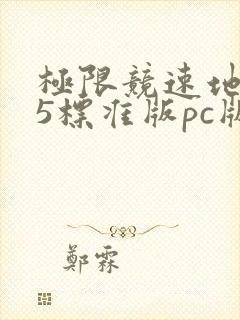 極限競速地
5標準版pc版
鄭霖